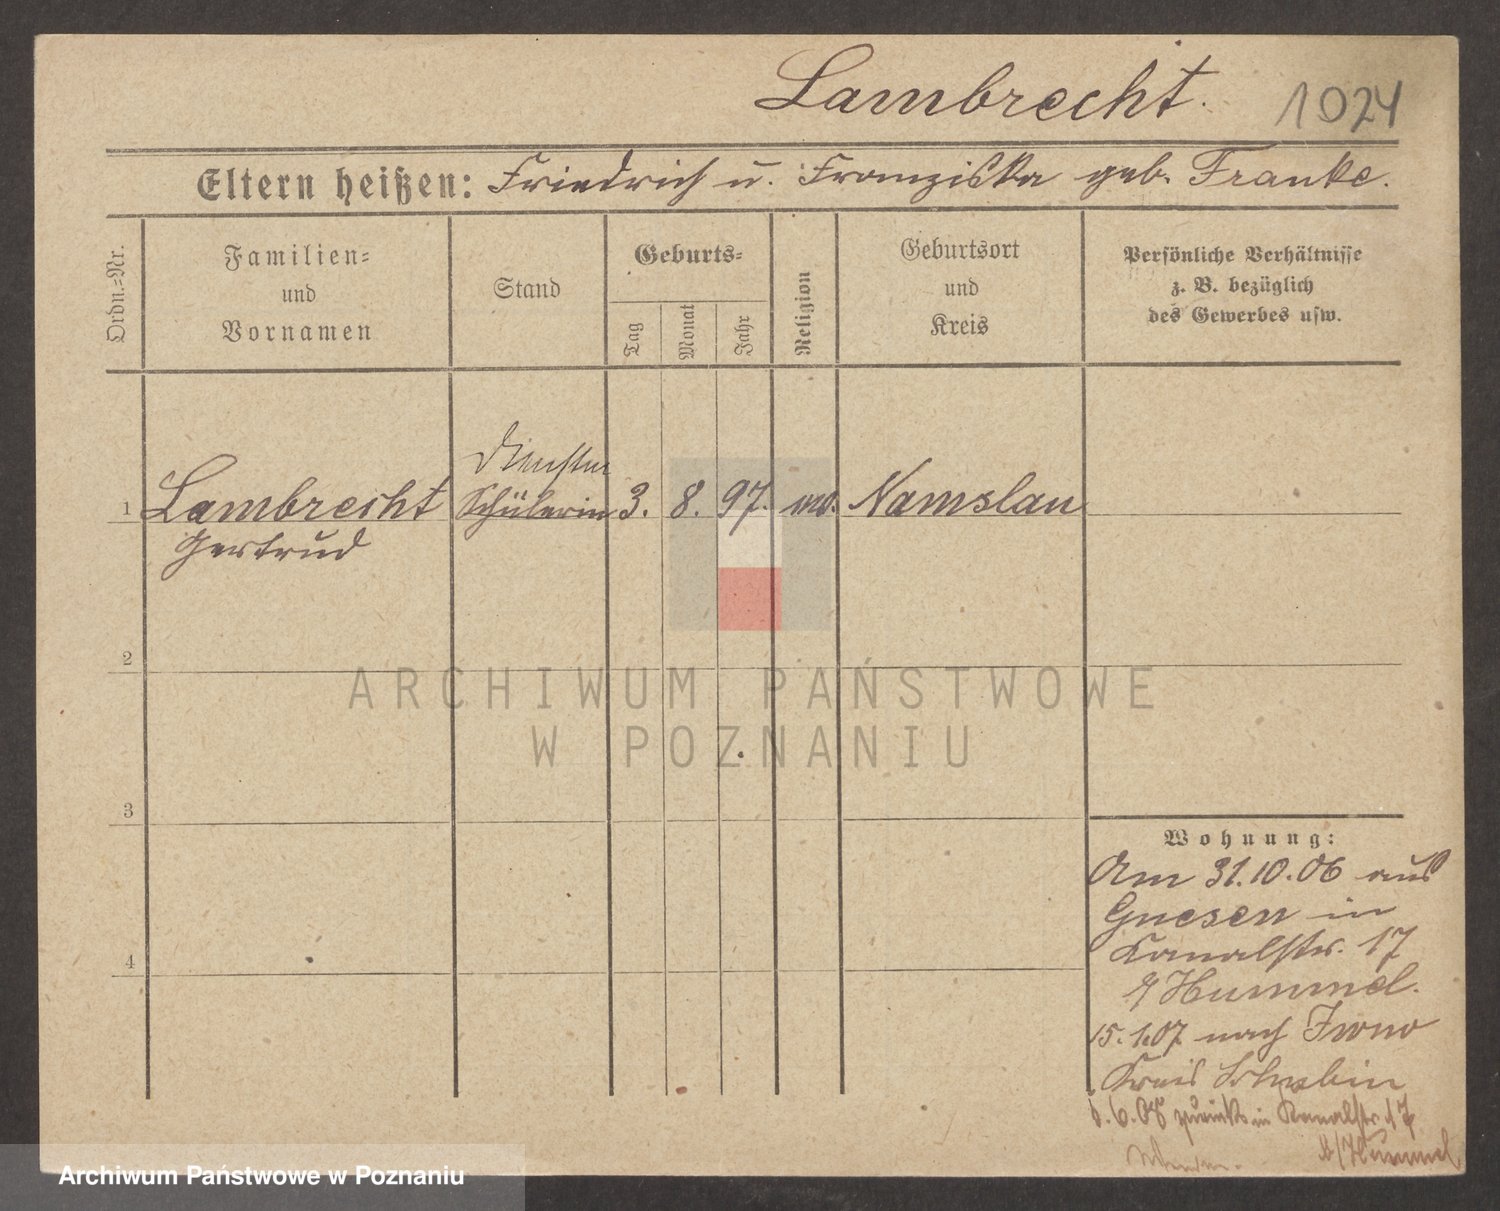 Lambrecht. 1024
Eltern heißen: Friedrich u. Franziska geb. Franke.
Ordn.=Nr.
Familien=
und
Vornamen
Stand
Geburts=
Tag
Monat
Jahr
Religion
Geburtsort
und
Kreis
Persönliche Verhältnisse
z. B. bezüglich
des Gewerbes usw.
1 Lambrecht Schülerin 3. 8. 97. Namslau
Gertrud
2
3
4
ARCHIWUM PAŃSTWOWE
W POZNANIU
Wohnung:
Am 31.10.06 aus
Gnesen in
Kanalstr. 17
Hummel.
15.1.07 nach Iwno
Kreis Schubin
6.08 zurück in Kanalstr. 17
b/Hummel
Archiwum Państwowe w Poznaniu